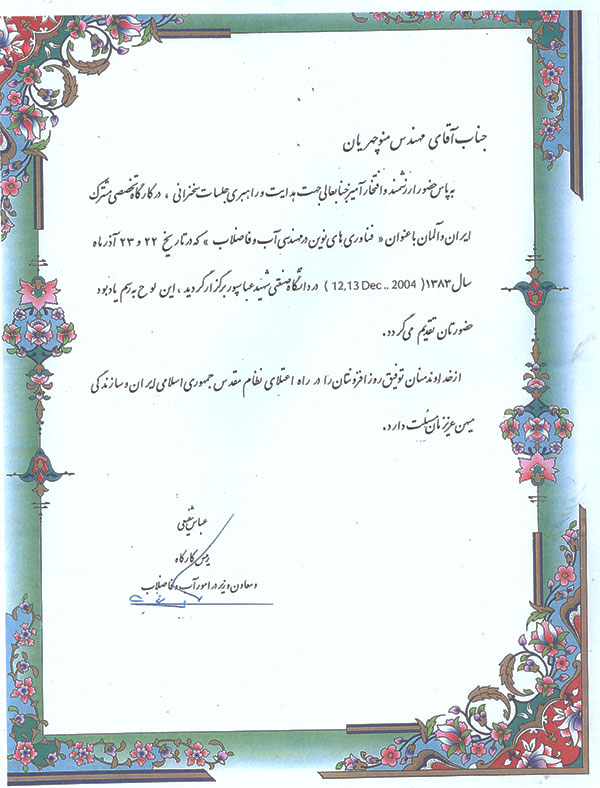 جناب آقای مهندس منوچهریان
به پاس حضور ارزشمند و افتخار آمیز جنابعالی جهت هدایت و راهبری جلسات سخنرانی ، در کارگاه تخصصی مشترک
ایران و آلمان با عنوان « فناوری های نوین در مهندسی آب و فاضلاب » که در تاریخ ۲۲ و ۲۳ آذر ماه
سال ۱۳۸۳( 12,13 Dec ., 2004 ) در دانشگاه صنعتی شهید عباسپور برگزار گردید ، این لوح به رسم یاد بود
حضورتان تقدیم می گردد.
از خداوند منان توفیق روز افزونتان را در راه اعتلای نظام مقدس جمهوری اسلامی ایران و سازندگی
میهن عزیزمان مسئلت دارد.
عباس شفیعی
رئیس کارگاه
و معاون وزیر در امور آب و فاضلاب